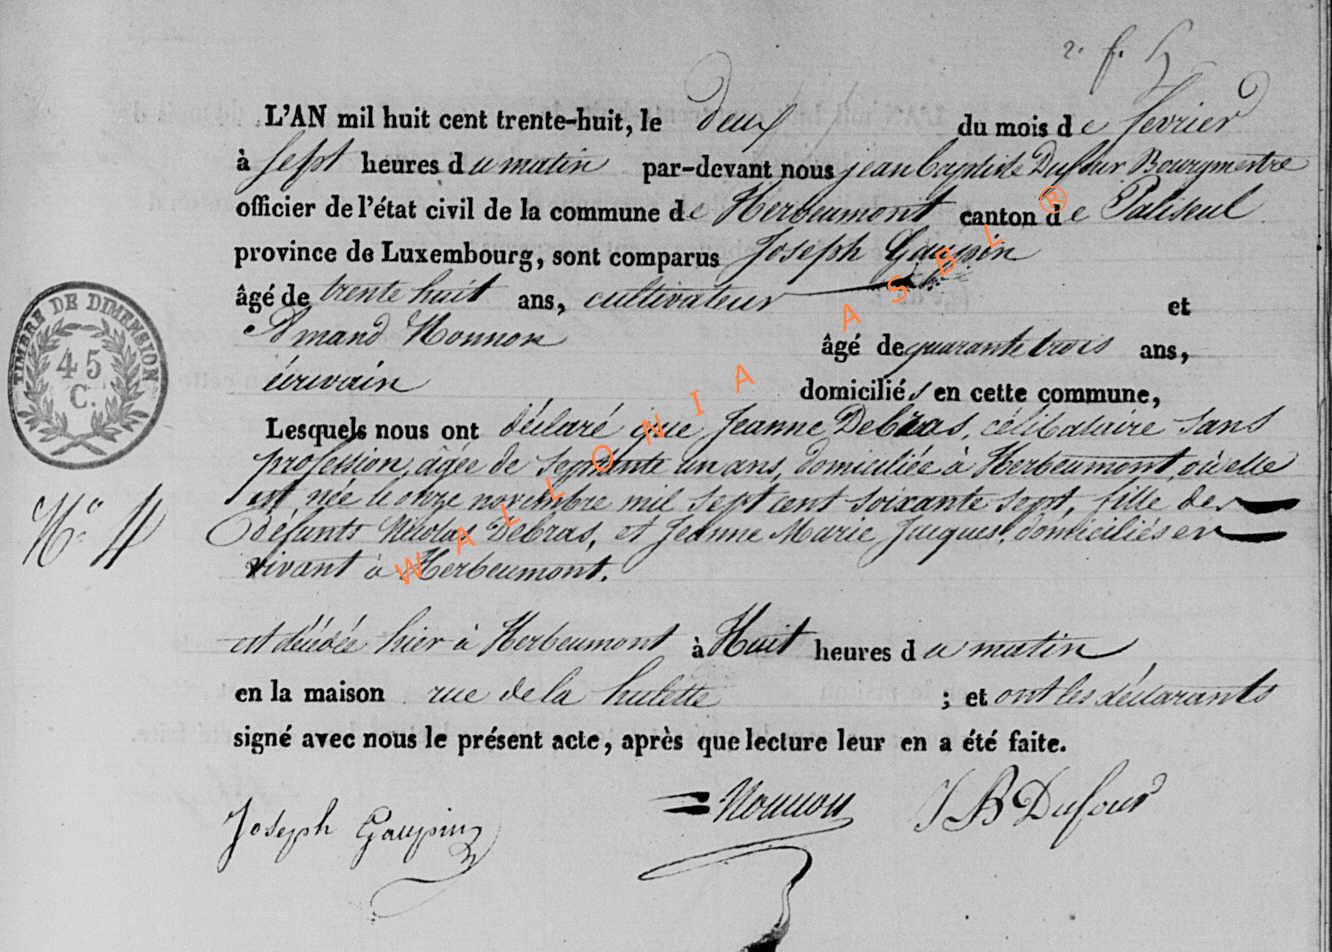 2. f. 5
L'AN mil huit cent trente-huit, le deux du mois de fevrier
à sept heures du matin par-devant nous jean baptiste Dufour Bourgmestre
officier de l'état civil de la commune de Herbeumont canton de Paliseul
province de Luxembourg, sont comparus Joseph Gaupin
âgé de trente huit ans, cultivateur et
Amand Nonnon âgé de quarante trois ans,
écrivain domiciliés en cette commune,
Lesquels nous ont déclaré que Jeanne Debras, célibataire sans
profession, âgée de septante un ans, domiciliée à Herbeumont, où elle
est née le onze novembre mil sept cent soixante sept, fille de
défunts Nicolas Debras, et Jeanne Marie Jacques, domiciliés en
vivant à Herbeumont.
N° 4
est décédée hier à Herbeumont à Huit heures du matin
en la maison rue de la hulette ; et ont les déclarants
signé avec nous le présent acte, après que lecture leur en a été faite.
Joseph Gaupin Nonnon J B Dufour
TIMBRE DE DIMENSION
45
C.
WALLONIA ASBL ®